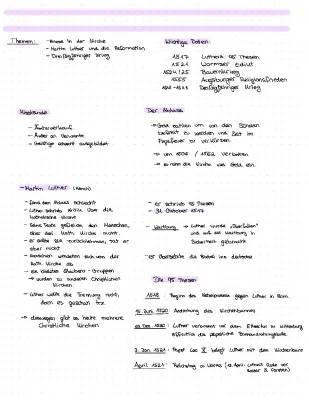 Themen: - Krise in der Kirche
- Martin Luther und die Reformation
- Dreißigjähriger Krieg
Wichtige Daten
1517 Luthers 95 Thesen
1521 Wormser Edikt
1524/25 Bauernkrieg
1555 Augsburger Religionsfrieden
1618 - 1648 Dreißigjähriger Krieg
Missstände
- Ämterverkauf
- Geistliche schlecht ausgebildet
Der Ablass
→ Geld zahlen um von den Sünden
befreit zu werden und Zeit im
Fegefeuer zu verkürzen
→ so nahm die Kirche viel Geld ein
- Martin Luther (Mönch)
- fand den Ablass schlecht
- Luther schrieb Kritik über die
katholische Kirche
- Seine Texte gefielen den Menschen,
aber der kath. Kirche nicht
- er sollte es zurücknehmen, tat er
aber nicht
- Menschen wendeten sich von der
kath. Kirche ab
- es bildeten Glaubens-Gruppen
→ wurden zu anderen Christlichen
Kirchen
- Luther wollte die Trennung nicht,
doch es geschah trz.
→ deswegen gibt es heute mehrere
Christliche Kirchen
- er schrieb 95 Thesen
- 31. Oktober 1517
- Wartburg → Luther wurde "überfallen"
und auf der Wartburg in
Sicherheit gebracht
- er übersetzte die Bibel ins deutsche
Die 95 Thesen
1518 Beginn des Ketzerprozess gegen Luther in Rom
15. Juni 1520 Androhung des Kirchenbannes
10. Dez. 1520: Luther verbrennt vor dem Elstertor zu Wittenberg
öffentlich die päpstliche Bannandrohungsbulle
3. Jan. 1521: Papst Leo X belegt Luther mit dem Kirchenbann
April 1521: Reichstag in Worms (18. April: Luthers Rede vor
Kaiser & Fürsten)